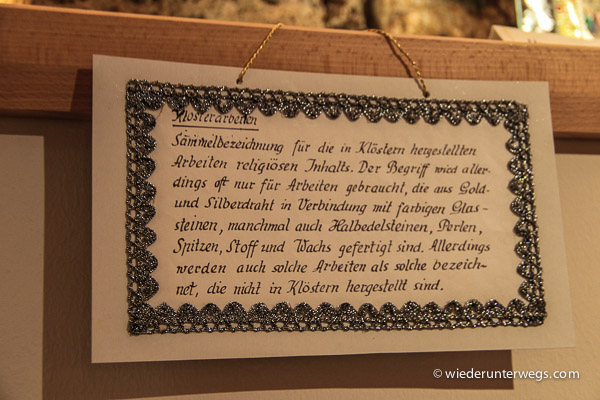 Klosterarbeiten
Sammelbezeichnung für die in Klöstern hergestellten
Arbeiten religiösen Inhalts. Der Begriff wird aller-
dings oft nur für Arbeiten gebraucht, die aus Gold-
und Silberdraht in Verbindung mit farbigen Glas-
steinen, manchmal auch Halbedelsteinen, Perlen,
Spitzen, Stoff und Wachs gefertigt sind. Allerdings
werden auch solche Arbeiten als solche bezeich-
net, die nicht in Klöstern hergestellt sind.
© wiederunterwegs.com